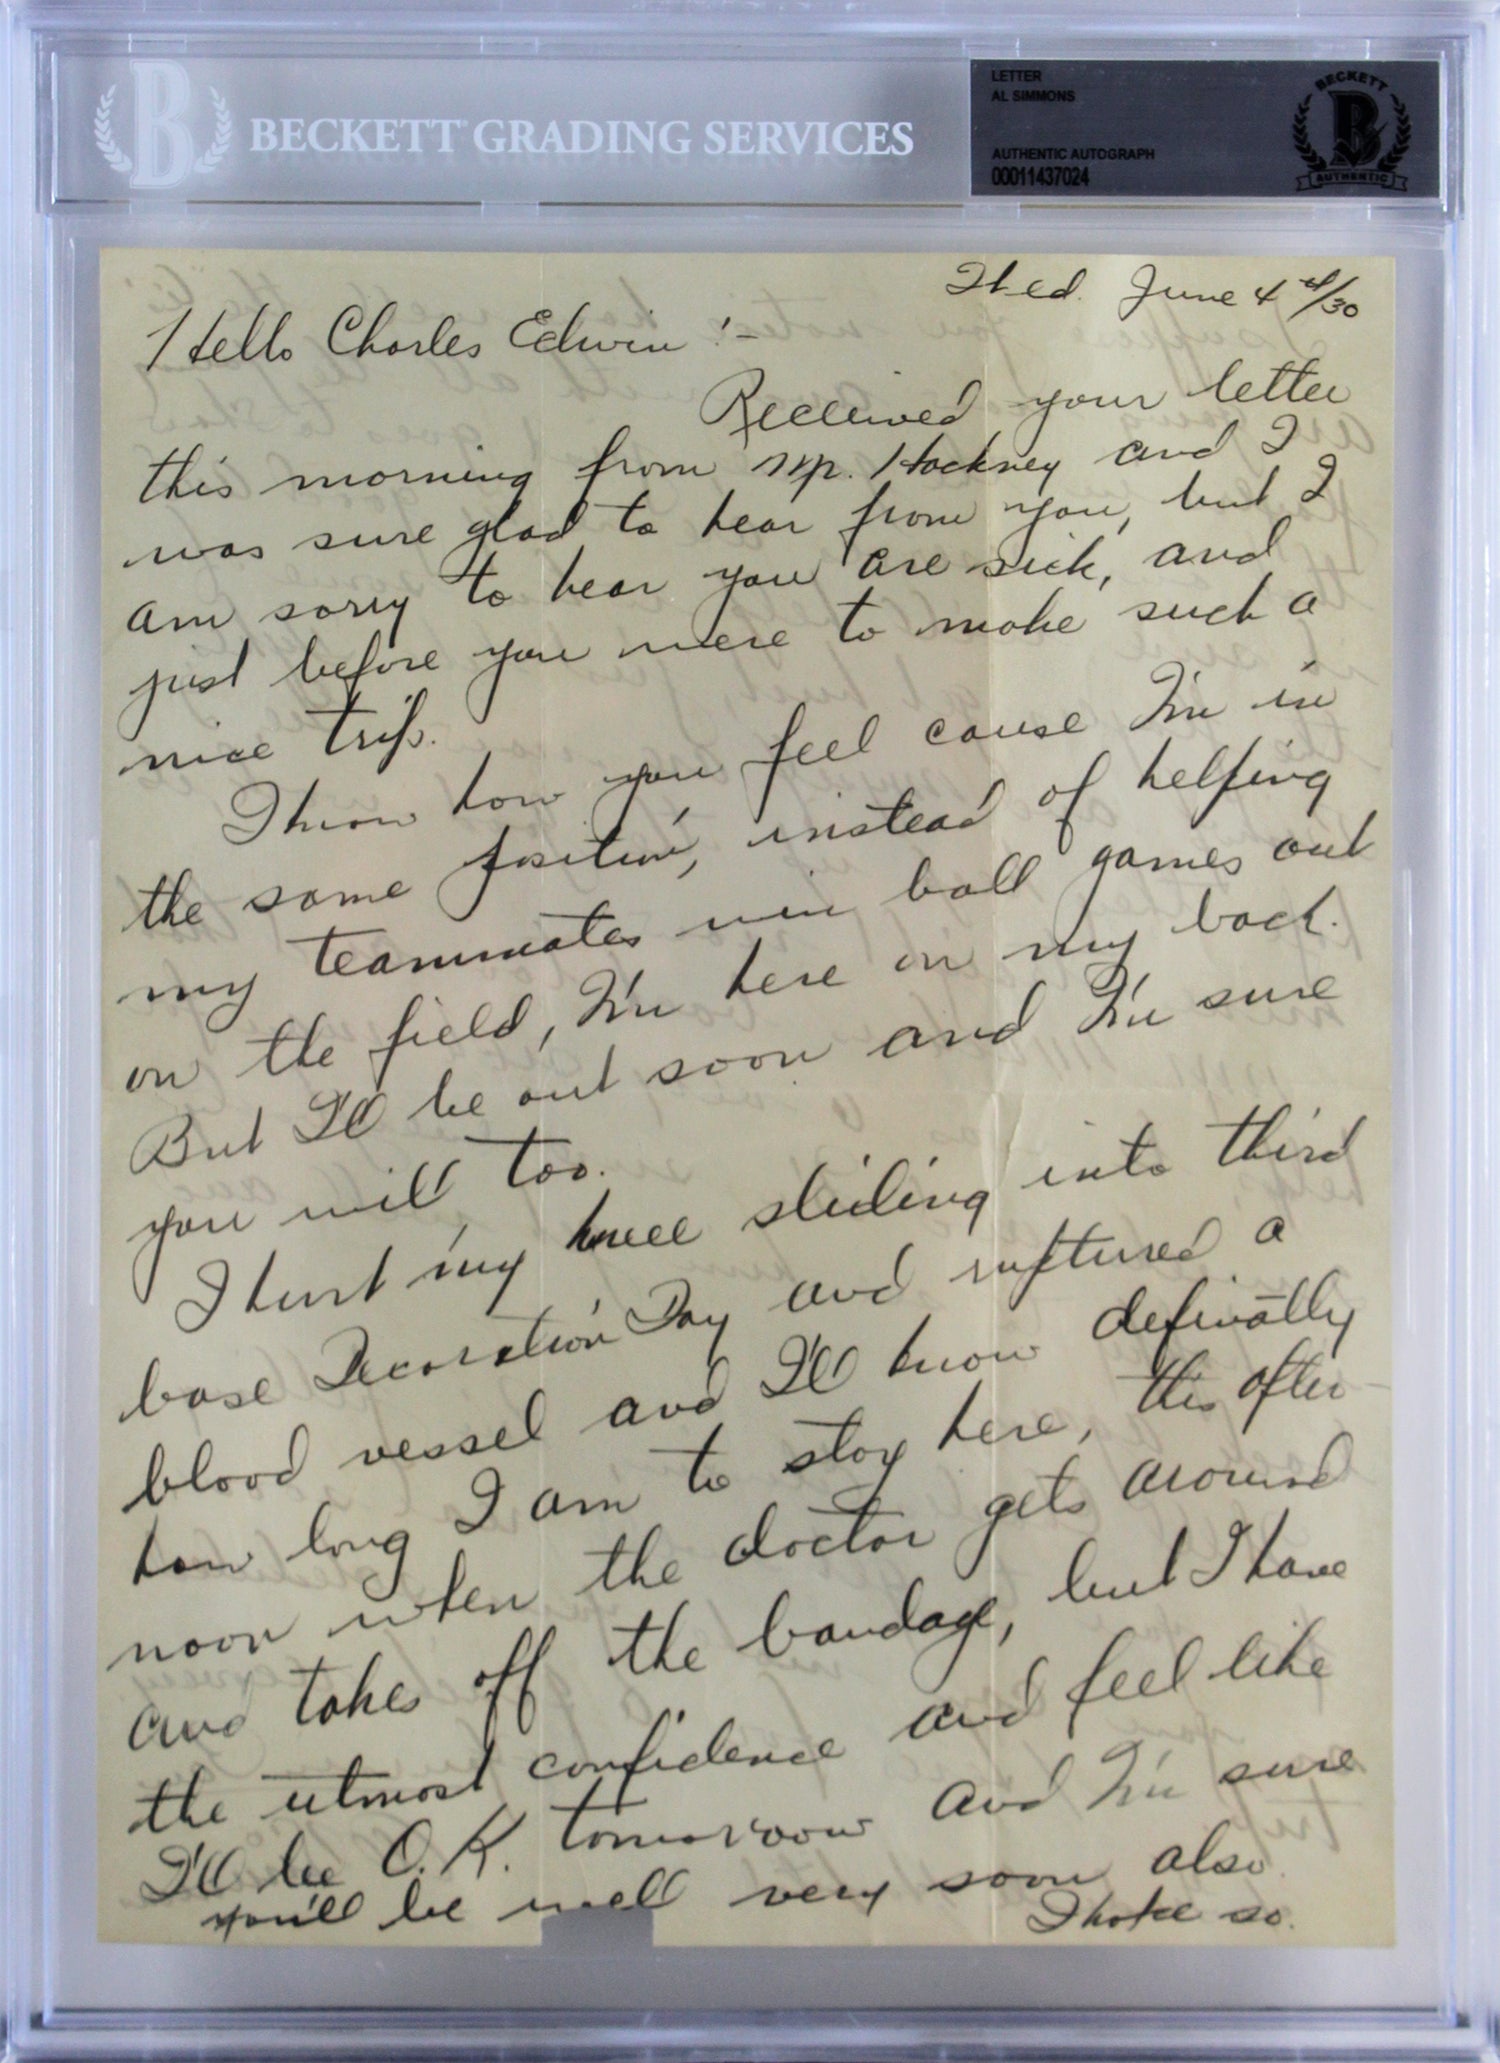 BECKETT GRADING SERVICES
LETTER
AL SIMMONS
AUTHENTIC AUTOGRAPH
00011437024
BECKETT
B
AUTHENTIC
Wed. June 4th/30
Hello Charles Edwin :-
Received your letter
this morning from Mr. Hockney and I
was sure glad to hear from you, but I
am sorry to hear you are sick, and
just before you were to make such a
nice trip.
I know how you feel cause I'm in
the same position, instead of helping
my teammates win ball games out
on the field, I'm here on my back.
But I'll be out soon and I'm sure
you will too.
I hurt my knee sliding into third
base Decoration Day and ruptured a
blood vessel and I'll know definatly
how long I am to stay here, this after-
noon when the doctor gets around
and takes off the bandage, but I have
the utmost confidence and feel like
I'll be O.K. tomorrow and I'm sure
you'll be well very soon also.
I hope so.